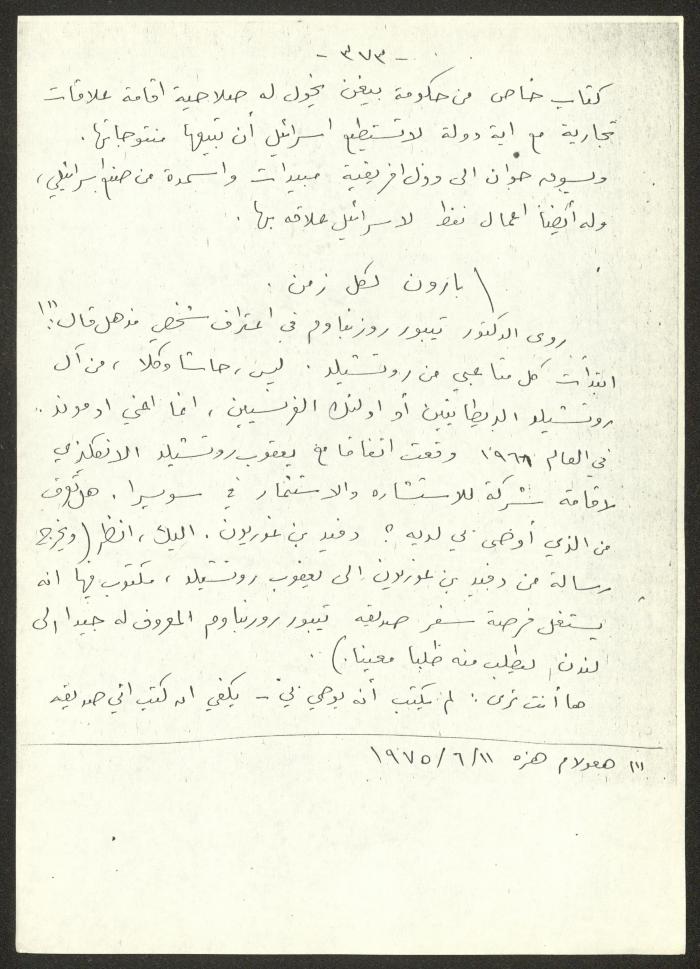 - ٣٧٣ -
كتاب خاص من حكومة بيغن يخول له صلاحية اقامة علاقات
تجارية مع اية دولة لا تستطيع اسرائيل أن تبيعها منتوجاتها.
ويسوق حوان الى دول افريقية مبيدات واسمدة من صنع اسرائيلي،
وله أيضا اعمال نفط لاسرائيل علاقه بها.
بارون لكل زمن.
روى الدكتور تيبور روزنباوم في اعتراف شخصي مذهل قال: (١)
ابتدأت كل متاعبي من روتشيلد. ليس، حاشا وكلا، من آل
روتشيلد البريطانيين أو اولئك الفرنسيين، انما اعني ادموند..
في العام وقعت اتفاقا مع يعقوب روتشيلد الانكليزي
لاقامة شركة للاستشاره والاستثمار في سويسرا. هل تعرف
من الذي أوصى بي لديه؟ دفيد بن غوريون. اليك، انظر (ويخرج
رسالة من دفيد بن غوريون الى يعقوب روتشيلد، مكتوب فيها انه
يستغل فرصة سفر صديقه تيبور روزنباوم المعروف له جيدا الى
لندن ليطلب منه طلبا معينا.).
ها أنت ترى: لم يكتب أنه يوصي بي - يكفي انه كتب اني صديقه
(١) هعولام هزه ١١/٦/١٩٧٥